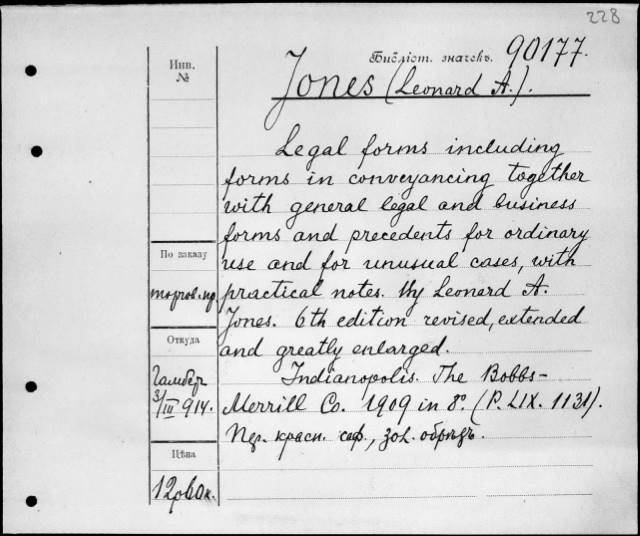 228
Библіот. значекъ. 90177.
Инв. №
Jones (Leonard A.).
Legal forms including
forms in conveyancing together
with general legal and business
forms and precedents for ordinary
use and for unusual cases, with
practical notes. By Leonard A.
Jones. 6th edition revised, extended
and greatly enlarged.
Indianopolis. The Bobbs-
Merrill Co. 1909 in 8°. (P. LIX. 1131).
Пер. красн. саф., зол. обрѣзъ.
По заказу
торгов. пр.
Откуда
Гамбер
3/III 914.
Цѣна
12р60к.